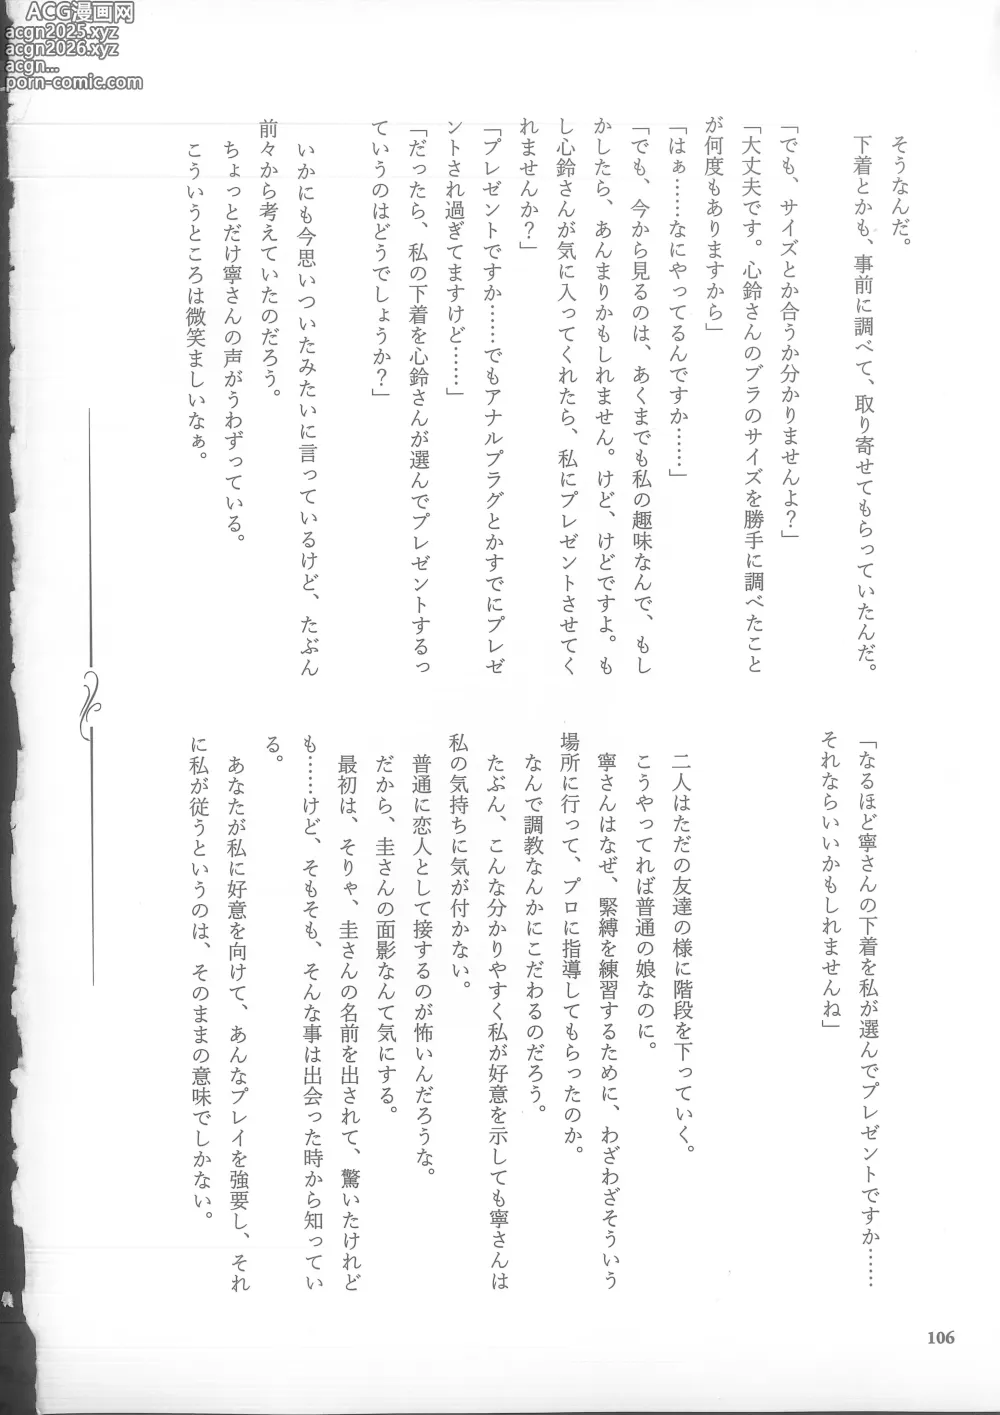 ACG漫画网
acgn2025.xyz
acgn2026.xyz
acgn...
porn-comic.com
そうなんだ。
下着とかも、事前に調べて、取り寄せてもらっていたんだ。
「でも、サイズとか合うか分かりませんよ？」
「大丈夫です。心鈴さんのブラのサイズを勝手に調べたこと
が何度もありますから」
「はぁ……なにやってるんですか……」
「でも、今から見るのは、あくまでも私の趣味なんで、もし
かしたら、あんまりかもしれません。けど、けどですよ。も
し心鈴さんが気に入ってくれたら、私にプレゼントさせてく
れませんか？」
「プレゼントですか……でもアナルプラグとかすでにプレゼ
ントされ過ぎてますけど……」
「だったら、私の下着を心鈴さんが選んでプレゼントするっ
ていうのはどうでしょうか？」
いかにも今思いついたみたいに言っているけど、たぶん
前々から考えていたのだろう。
ちょっとだけ寧さんの声がうわずっている。
こういうところは微笑ましいなぁ。
「なるほど寧さんの下着を私が選んでプレゼントですか……
それならいいかもしれませんね」
二人はただの友達の様に階段を下っていく。
こうやってれば普通の娘なのに。
寧さんはなぜ、緊縛を練習するために、わざわざそういう
場所に行って、プロに指導してもらったのか。
なんで調教なんかにこだわるのだろう。
たぶん、こんな分かりやすく私が好意を示しても寧さんは
私の気持ちに気が付かない。
普通に恋人として接するのが怖いんだろうな。
だから、圭さんの面影なんて気にする。
最初は、そりゃ、圭さんの名前を出されて、驚いたけれど
も……けど、そもそも、そんな事は出会った時から知ってい
る。
あなたが私に好意を向けて、あんなプレイを強要し、それ
に私が従うというのは、そのままの意味でしかない。
106